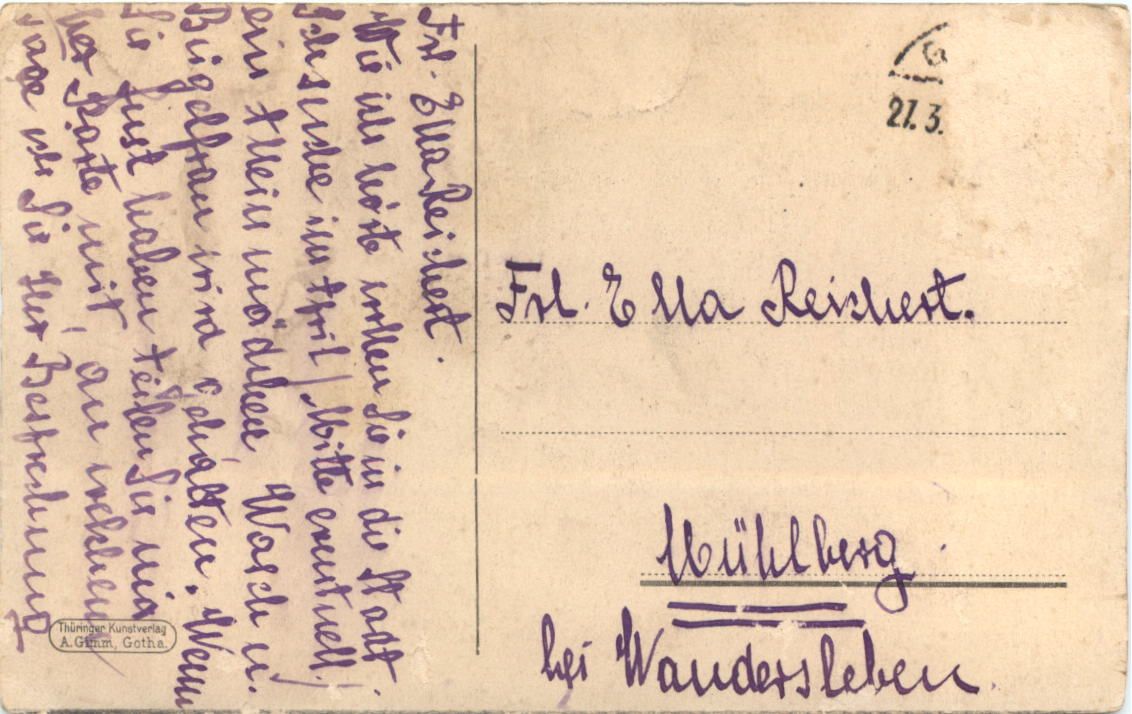 Frl. Ella Reichert.
Wie ich hörte wollen Sie in die Stadt.
Ich suche im April / Mitte eventuell /
ein Alleinmädchen Wasch u.
Bügelfrau wird gehalten. Wenn
Sie Lust haben teilen Sie mir
per Karte mit, an welchem
Tage ich Sie zur Besprechung
Thüringer Kunstverlag
A. Gimm, Gotha.
27. 3.
Frl. Ella Reichert.
Mühlberg
bei Wandersleben.